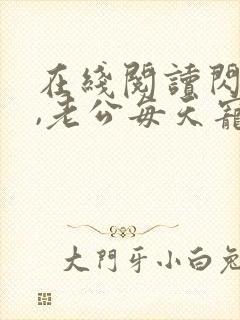 在綫閱讀閃
,老公每天寵
大門牙小白兔